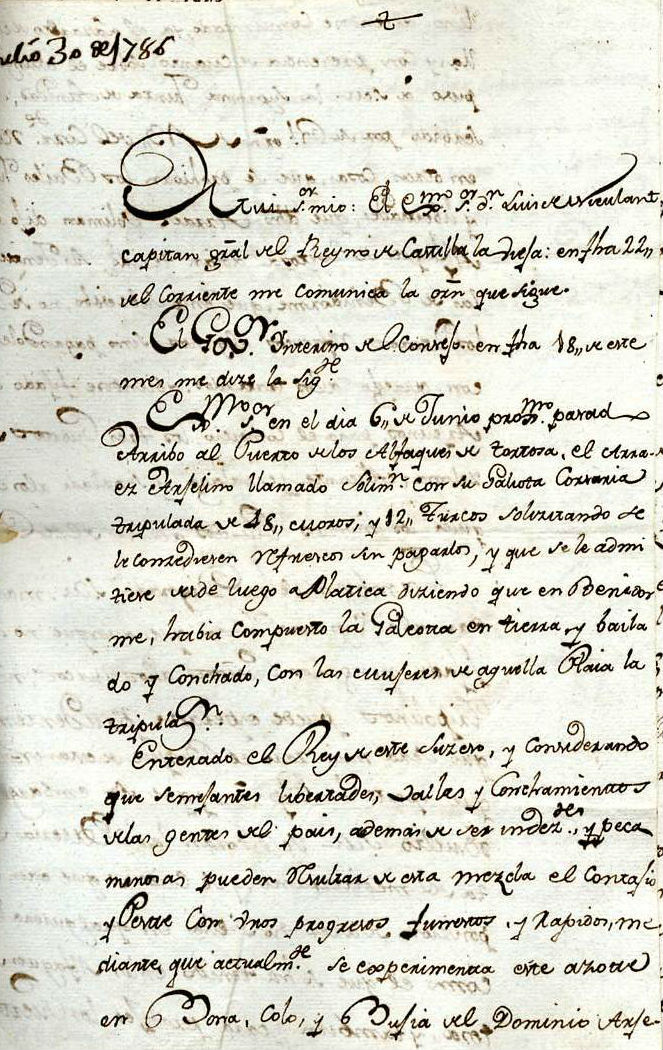 30 de 1786
Mui s.or mio: El Exmo. S.or d.n Luis de Urculant,
capitan gral del Reyno de Castilla la Vieja: en fha 22,,
del Corriente me comunica la orn que sigue.
El Gov.or Interino del Consejo en fha 18,, de este
mes me dize la sig.te
Exmo S.or en el dia 6,, de Junio prox.mo pasado
Arribo al Puerto de los Alfaques de tortosa, el Arra-
ez Arselino llamado Solim.n con su Galiota Corsaria
tripulada de 48,, moros, y 12,, Turcos solizitando se
le conzediesen refrescos sin pagarlos, y que se le admi
tiese desde luego a Platica diziendo que en Benidor
me, habia compuesto la Galeota en tierra, y baila
do y Conchado, con las mujeres de aquella Plaia la
tripula.on
Enterado el Rey de este suzeso, y considerando
que semejantes libertades, vailes y Conchamientos
de las gentes del pais, ademas de ser indez.tes, y peca
minosas pueden resultar de esta mezcla el Contajio
y Peste con unos progresos funestos, y rapidos, me
diante que actualm.te se experimenta este azote
en Bona, Colo, y Bujia del Dominio Arje-